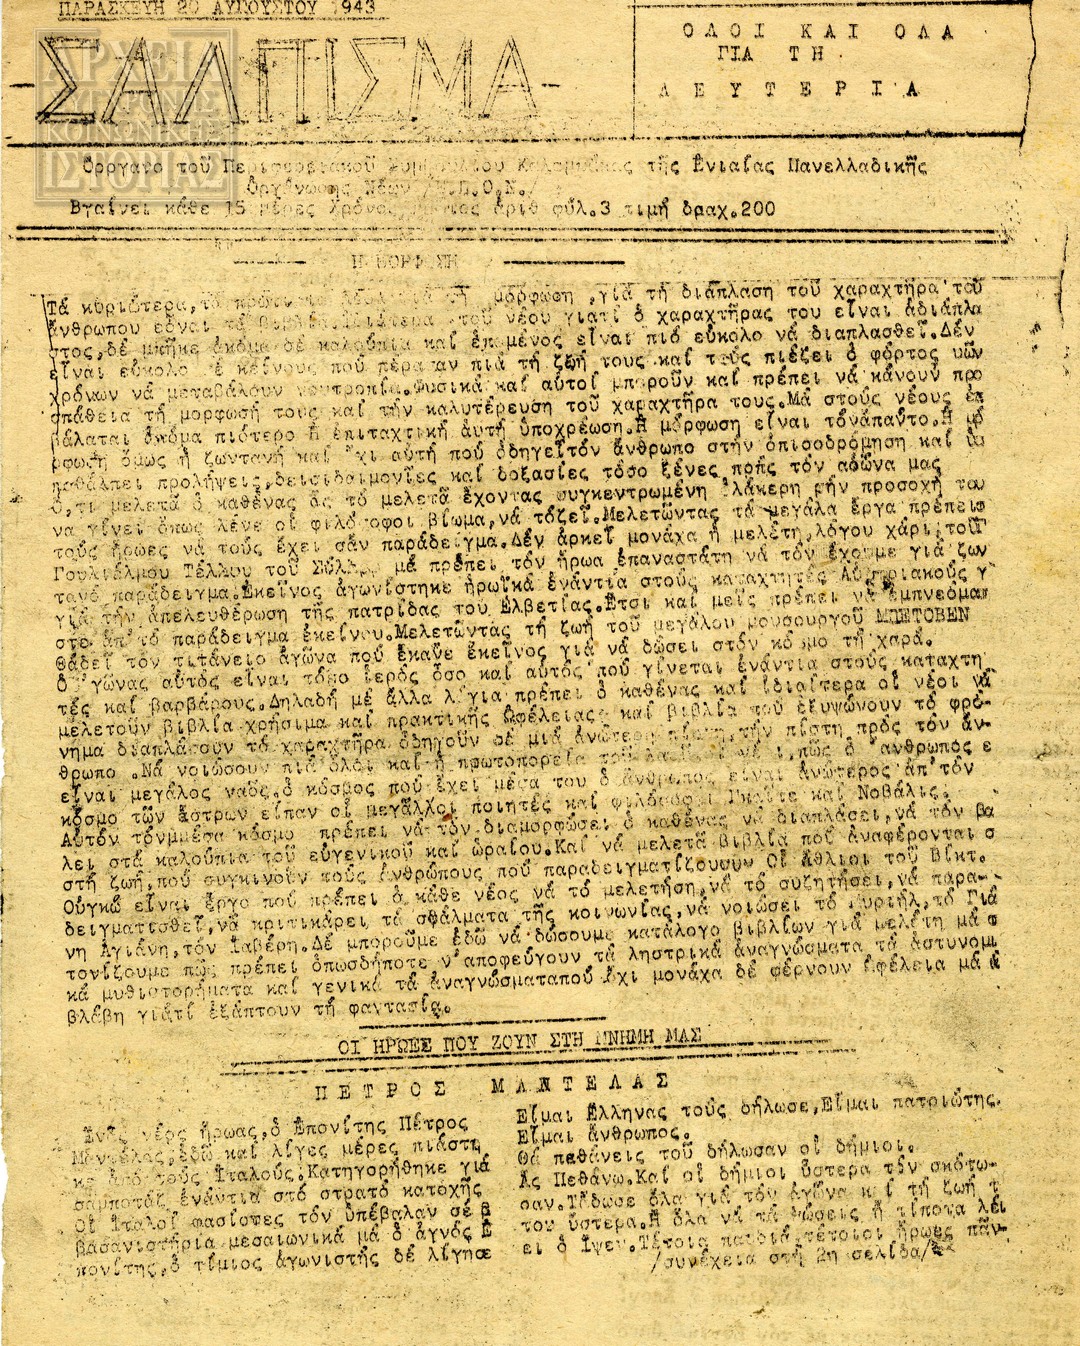 ΠΑΡΑΣΚΕΥΗ 20 ΑΥΓΟΥΣΤΟΥ 1943
ΣΑΛΠΙΣΜΑ
ΟΛΟΙ ΚΑΙ ΟΛΑ
ΓΙΑ ΤΗ
ΛΕΥΤΕΡΙΑ
ΑΡΧΕΙΑ
ΣΥΓΧΡΟΝΗΣ
ΚΟΙΝΩΝΙΚΗΣ
ΙΣΤΟΡΙΑΣ
τῆς Ἑνιαίας Πανελλαδικῆς
Ὀργάνωσης Νέων /Ε.Π.Ο.Ν./
Βγαίνει κάθε 15 μέρες Χρόνος ἀριθ φύλ.3 τιμή δραχ.200
Η ΜΟΡΦΩΣΗ
Τά κυριώτερα, μόρφωση ,γιά τή διάπλαση τοῦ χαραχτῆρα τοῦ
ἄνθρωπου τοῦ νέου γιατί ὁ χαραχτῆρας του εἶναι ἀδιάπλα
στος,δέ μπῆκε ἀκόμα σέ καλούπια καί ἑπομένος εἶναι πιό εὔκολο νά διαπλασθεῖ.Δέν
εἶναι εὔκολο κείνους πού πέρασαν πιά τή ζωή τους καί τούς πιέζει ὁ φόρτος
χρόνων νά μεταβάλουν νουτροπία.Φυσικά καί αὐτοί μποροῦν καί πρέπει νά κάνουν προ
σπάθεια τή μορφωσή τους καί τήν καλυτέρευση τοῦ χαραχτῆρα τους.Μά στούς νέους ἐπ
βάλαται ἀκόμα πιότερο ἡ ἐπιταχτική αὐτή ὑποχρέωση.Ἡ μόρφωση εἶναι τόνἅπαντο.Ἡ μό
ρφωση ὅμως ἡ ζωντανή καί ὄχι αὐτή πού ὁδηγεῖτόν ἄνθρωπο στήν ὀπισοδρόμηση καί
προλήψεις,δεισιδαιμονίες καί δοξασίες τόσο ξένες πρός τόν αἰῶνα μας
Ὅ,τι μελετᾶ ὁ καθένας ἄς τό μελετᾶ ἔχοντας συγκεντρωμένη ὁλάκερη τήν προσοχή του
να γίνει ὅπως λένε οἱ φιλόσοφοι βίωμα,νά τόζεῖ.Μελετῶντας τά μεγάλα ἔργα πρέπει
τούς ἥρωες νά τούς ἔχει σάν παράδειγμα.Δέν ἀρκεῖ μονάχα ἡ μελέτη,λόγου χάρι,τοῦ
Γουλιέλμου Τέλλου τοῦ μά πρέπει τόν ἥρωα ἐπαναστάτη νά τόν ἔχουμε γιά ζων
τανό παράδειγμα.Ἐκεῖνος ἀγωνίστηκε ἡρωϊκά ἐνάντια στούς καταχτητές Αὐστριακούς γ
γιά τήν ἀπελευθέρωση τῆς πατρίδας του Ἑλβετίας.Ἔτσι καί μεῖς πρέπει νά ἐμπνεόμα
στε ἀπ'τό παράδειγμα ἐκείνου.Μελετῶντας τή ζωή τοῦ μεγάλου μουσουργοῦ ΜΠΕΤΟΒΕΝ
θάδεῖ τόν τιτάνειο ἀγῶνα πού ἔκανε ἐκεῖνος γιά νά δώσει στόν κόσμο τή χαρά.
Ὁ ἀγῶνας αὐτός εἶναι τόσο ἱερός ὅσο καί αὐτός πού γίνεται ἐνάντια στούς καταχτη
τές καί βαρβάρους.Δηλαδή μέ ἄλλα λόγια πρέπει ὁ καθένας καί ἰδιαίτερα οἱ νέοι νά
μελετοῦν βιβλία χρήσιμα καί πρακτικῆς ὠφέλειας καί βιβλία πού ἐξυψώνουν τό φρό-
νημα διαπλάσσουν τό χαραχτῆρα ὁδηγοῦν σέ μιά ἀνώτερη πίστη,τήν πίστη πρός τόν ἄν-
θρωπο .Νά νοιώσουν πιά ὅλοι καί ἡ πρωτοπορεία πώς ὁ ἄνθρωπος ε
εἶναι μεγάλος ναός,ὁ κόσμος πού ἔχει μέσα του ὁ ἄνθρωπος εἶναι ἀνώτερος ἀπ'τόν
κόσμο τῶν ἄστρων εἶπαν οἱ μεγάλλοι ποιητές καί φιλόσοφοι Γκαῖτε καί Νοβάλις.
Αὐτόν τόνμμέσα κόσμο πρέπει νά τόν διαμορφώσει ὁ καθένας νά διαπλάσει,νά τόν βα
λει στά καλούπια τοῦ εὐγενικοῦ καί ὡραίου.Καί νά μελετᾶ βιβλία πού ἀναφέρονται σ
στή ζωή,πού συγκινοῦν τούς ἀνθρώπους πού παραδειγματίζουσυν Οἱ Ἄθλιοι τοῦ Βίκτ.
Οὑγκώ εἶναι ἔργο πού πρέπει ὁ κάθε νέος νά τό μελετήση,νά τό συζητήσει,νά παρα-
δειγματισθεῖ,νά κριτικάρει τά σφάλματα τῆς κοινωνίας,νά νοιώσει τό Μυριήλ,τό Γιά
νη Ἁγιάνη,τόν Ἰαβέρη.Δέ μποροῦμε ἐδῶ νά δώσουμε κατάλογο βιβλίων γιά μελέτη μά
τονίζουμε πώς πρέπει ὁπωσδήποτε ν'ἀποφεύγουν τά ληστρικά ἀναγνώσματα τά ἀστυνομι
κά μυθιστορήματα καί γενικά τά ἀναγνώσματαπού ὄχι μονάχα δέ φέρνουν ὠφέλεια μά ἀ
βλάβη γιατί ἐξάπτουν τή φαντασία.
ΟΙ ΗΡΩΕΣ ΠΟΥ ΖΟΥΝ ΣΤΗ ΜΝΗΜΗ ΜΑΣ
ΠΕΤΡΟΣ ΜΑΝΤΕΛΑΣ
Ἕνας νέος ἥρωας,ὁ Ἐπονίτης Πέτρος
Μαντέλας,ἐδῶ καί λίγες μέρες πιάστη
κε ἀπό τούς Ἰταλούς.Κατηγορήθηκε γιά
σαμποτάζ ἐνάντια στό στρατό κατοχῆς
Οἱ Ἰταλοί φασίστες τόν ὑπέβαλαν σέ β
βασανιστήρια μεσαιωνικά μά ὁ ἁγνός Ἐ
πονίτης,ὁ τίμιος ἀγωνιστής δέ λίγησε
Εἶμαι Ἕλληνας τούς δήλωσε,Εἶμαι πατριώτης.
Εἶμαι ἄνθρωπος.
Θά πεθάνεις τοῦ δήλωσαν οἱ δήμιοι.
Ἄς Πεθάνω.Καί οἱ δήμιοι ὕστερα τόν σκότω-
σαν.Τἄδωσε ὅλα γιά τόν ἀγῶνα καί τή ζωή τ
του ὕστερα.Ἤ ὅλα νά τά δώσεις ἤ τίποτα λέι
ει ὁ Ἴψεν.Τέτοια παιδιά,τέτοιοι ἥρωες πάν-
/συνέχεια στή 2η σελίδα/